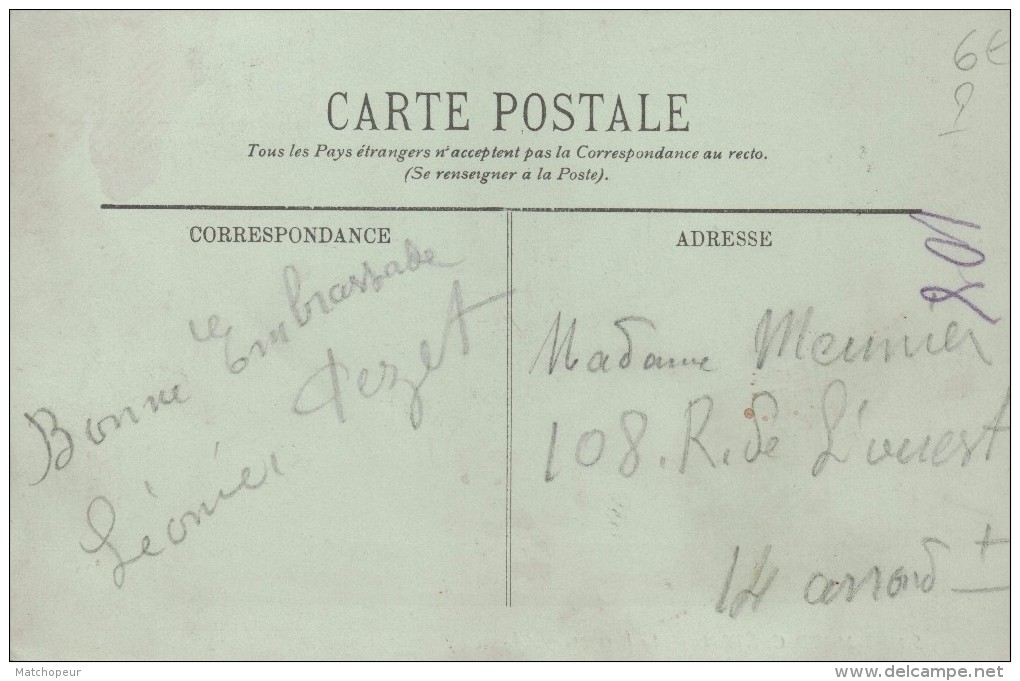 6€
CARTE POSTALE
Tous les Pays étrangers n'acceptent pas la Correspondance au recto.
(Se renseigner à la Poste).
CORRESPONDANCE
Bonne Embrassade
Pezet
ADRESSE
201
Madame Meunier
108. R. de L'ouest
14 arrond t
Matchopeur
www.delcampe.net